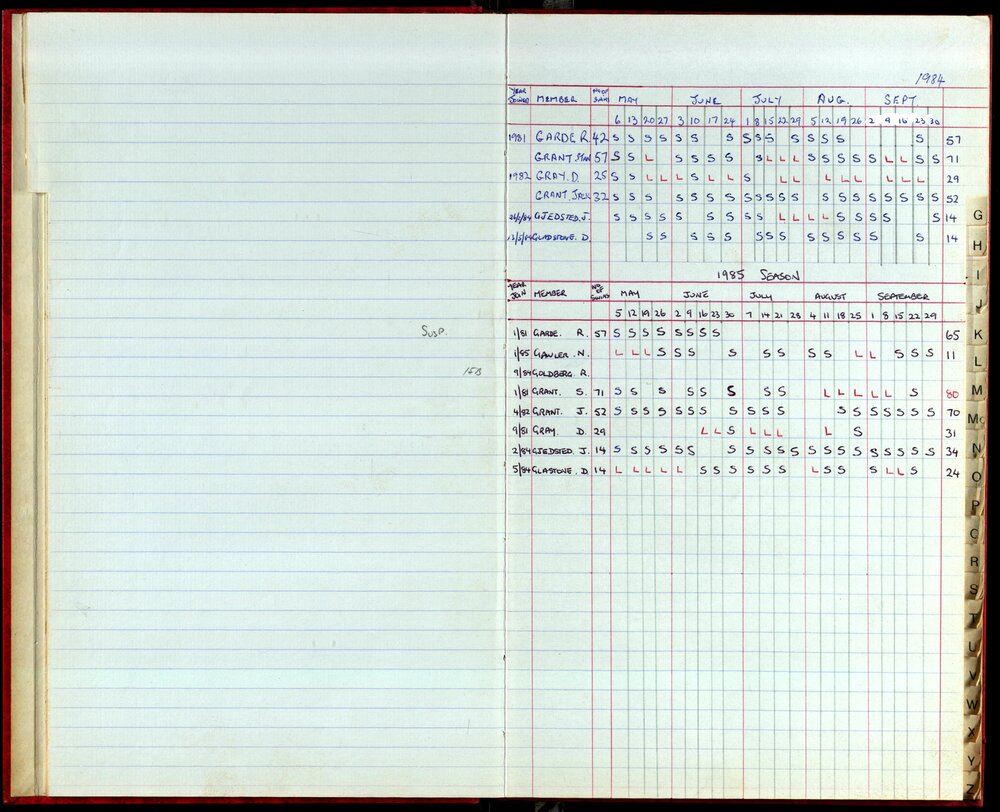 1984
YEAR JOINED MEMBER NO OF SWIMS MAY JUNE JULY AUG. SEPT
6 13 20 27 3 10 17 24 1 8 15 22 29 5 12 19 26 2 9 16 23 30
1981 GARDE R. 42 S S S S S S S S S S S S S S S 57
GRANT STAN 57 S S L S S S S S L L L S S S S S L L S S 71
1982 GRAY. D. 25 S S L L L S L L S L L L L L L L L 29
GRANT JACK 32 S S S S S S S S S S S S S S S S S S S S 52
GJEDSTED. J. S S S S S S S S S S L L L L S S S S S 14
13/5/84 GLADSTONE. D. S S S S S S S S S S S S S S 14
1985 SEASON
YEAR JOIN MEMBER NO OF SWIMS MAY JUNE JULY AUGUST SEPTEMBER
5 12 19 26 2 9 16 23 30 7 14 21 28 4 11 18 25 1 8 15 22 29
Susp. 1/81 GARDE. R. 57 S S S S S S S S 65
1/85 GAWLER. N. L L L S S S S S S S S L L S S S 11
15B 9/84 GOLDBERG. R.
1/81 GRANT S. 71 S S S S S S S S L L L L L S 80
4/82 GRANT. J. 52 S S S S S S S S S S S S S S S S S S 70
9/81 GRAY. D. 29 L L S L L L L S 31
2/84 GJEDSTED. J. 14 S S S S S S S S S S S S S S S S S S S S 34
5/84 GLASTONE. D 14 L L L L L S S S S S S L S S S L L S 24
G
H
I
J
K
L
M
Mc
N
O
P
Q
R
S
T
U
V
W
X
Y
Z